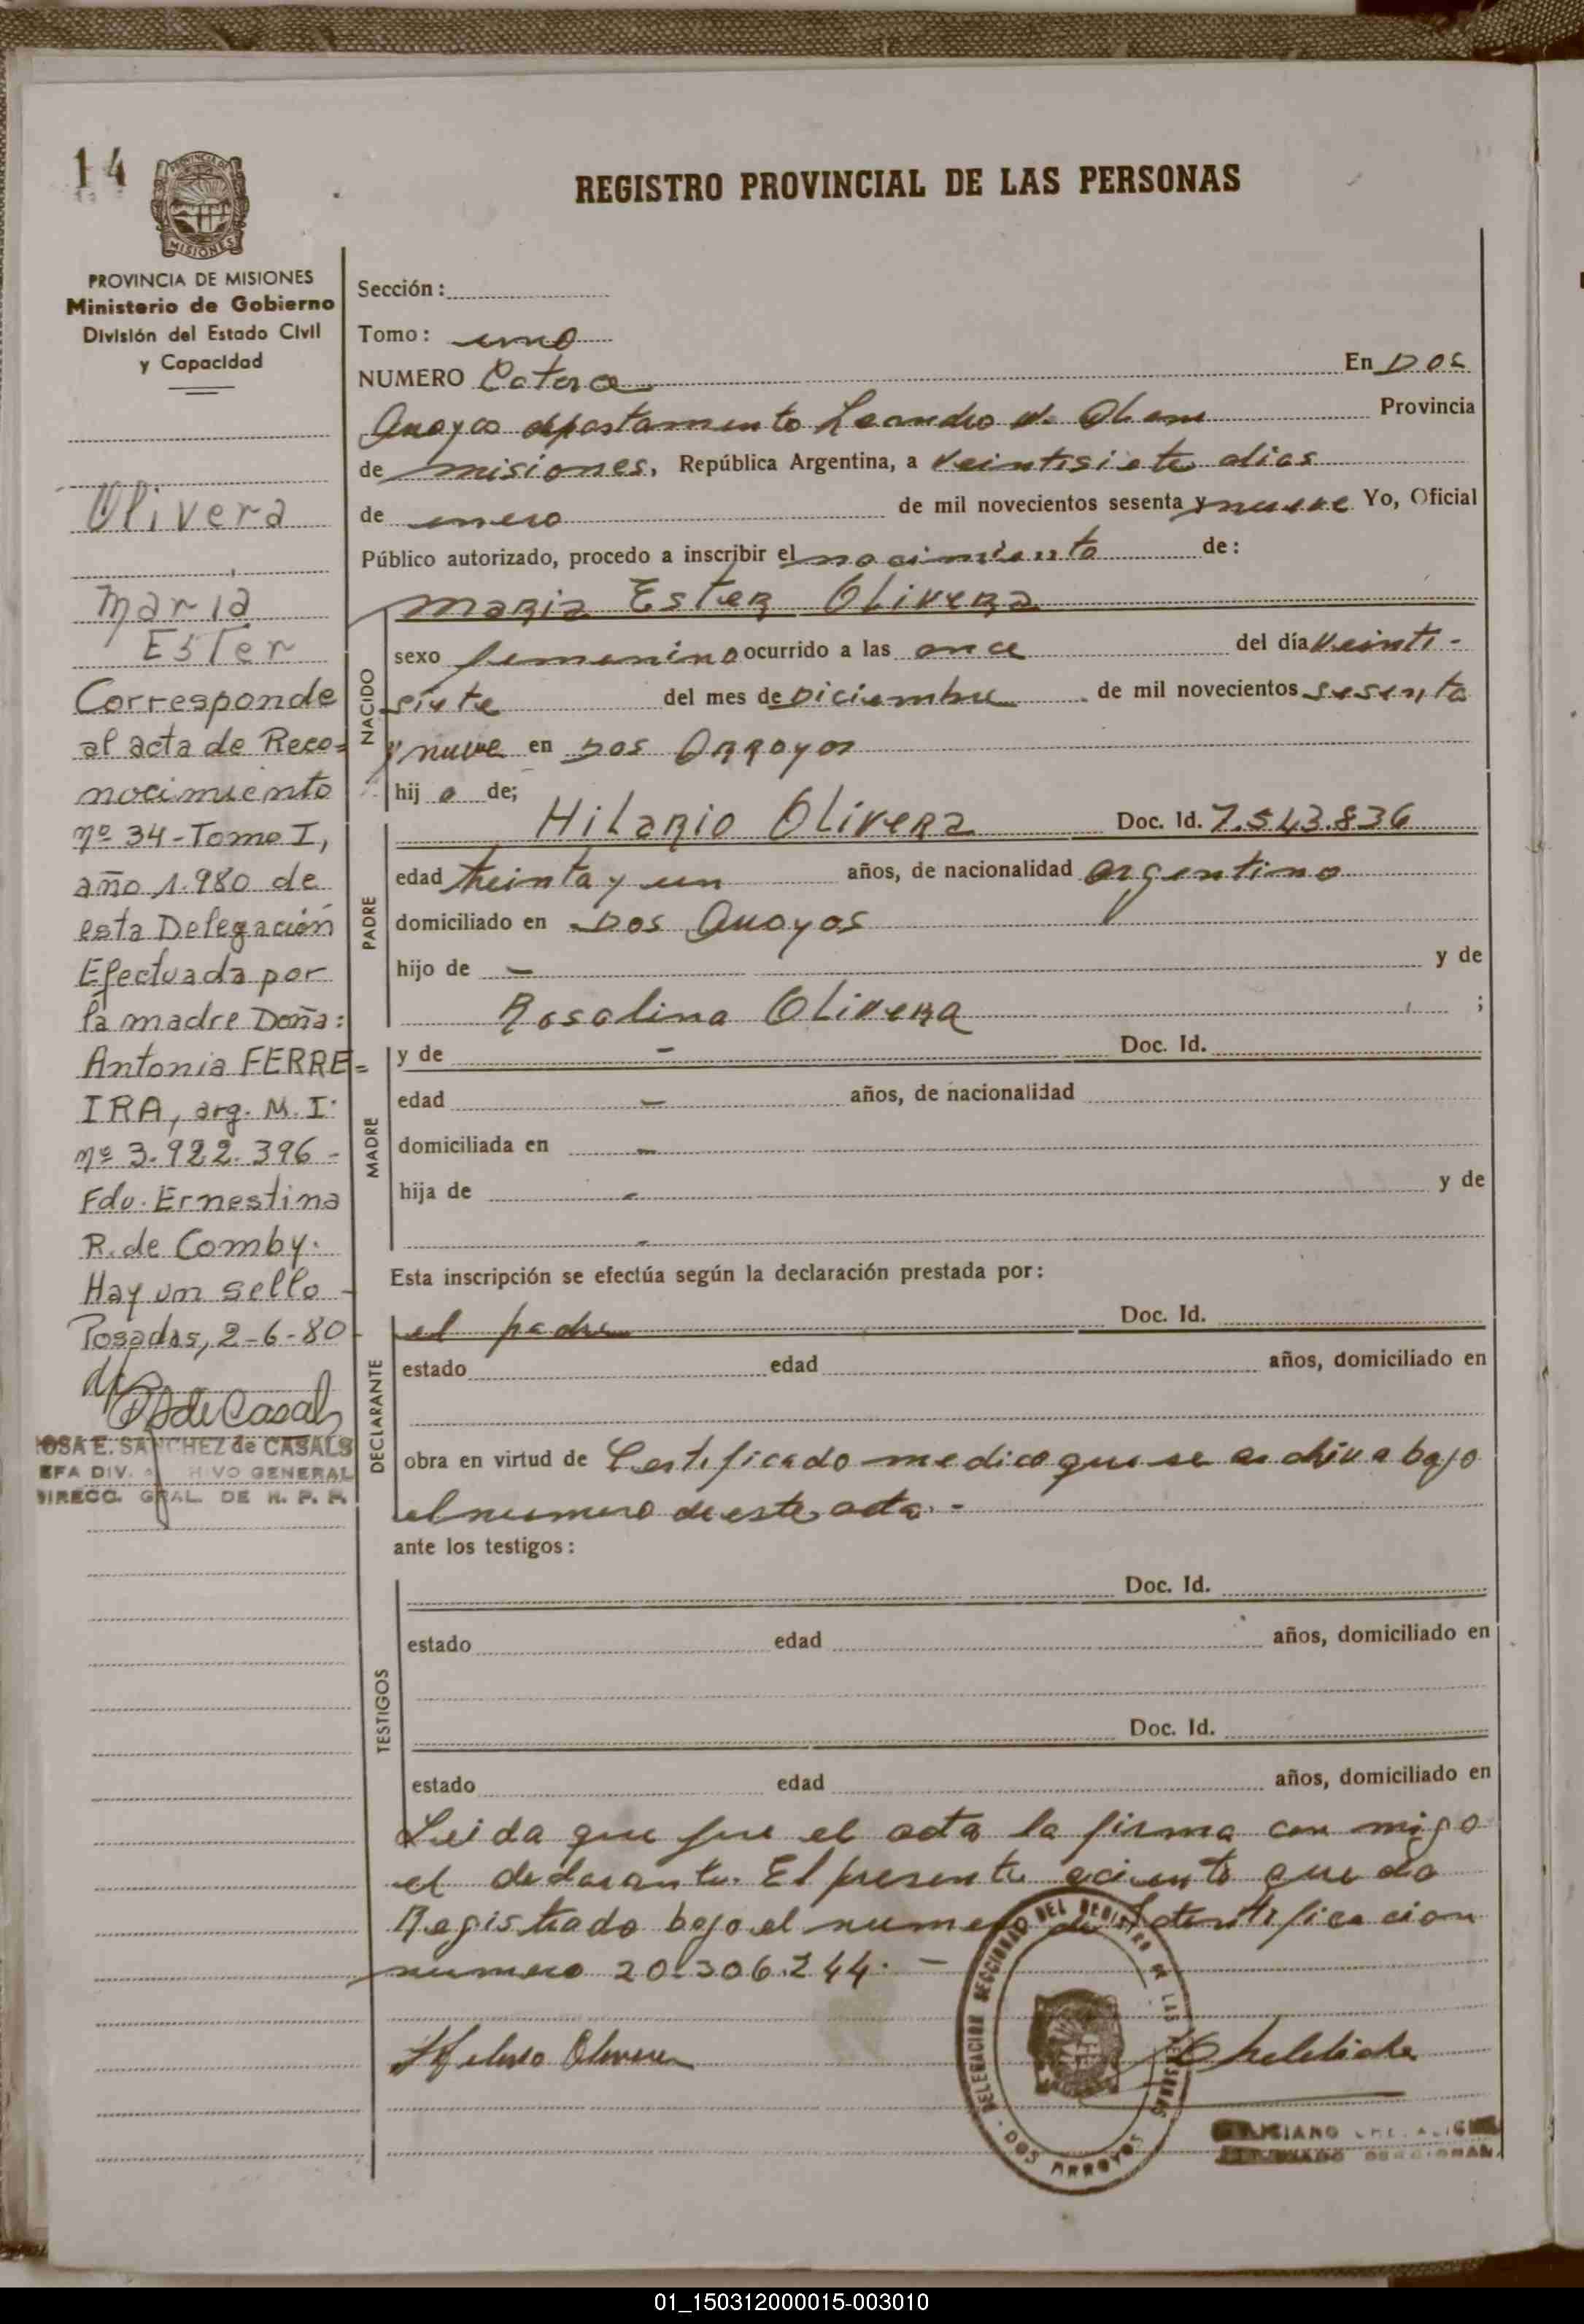 14
PROVINCIA DE
MISIONES
PROVINCIA DE MISIONES
Ministerio de Gobierno
División del Estado Civil
y Capacidad
Olivera
Maria
Ester
Corresponde
al acta de Reco=
nocimiento
nº 34-Tomo I,
año 1.980 de
esta Delegación
Efectuada por
la madre Doña:
Antonia FERRE=
IRA, arg. M.I.
nº 3.922.396-
Fdo. Ernestina
R. de Comby.
Hay un sello-
Posadas, 2-6-80
de Casals
OSA E. SANCHEZ de CASALS
EFA DIV. HIVO GENERAL
DIRECC. GRAL. DE R. P. P.
REGISTRO PROVINCIAL DE LAS PERSONAS
Sección:
Tomo: uno
NUMERO Catorce En Dos
Arroyos departamento Leandro N. Alem Provincia
de misiones, República Argentina, a veintisiete dias
de enero de mil novecientos sesenta y nueve Yo, Oficial
Público autorizado, procedo a inscribir el nacimiento de:
Maria Ester Olivera
NACIDO
sexo femenino ocurrido a las once del día veinti-
siete del mes de Diciembre de mil novecientos sesenta
y nueve en Dos Arroyos
hij a de;
PADRE
Hilario Olivera Doc. Id. 7.543.836
edad treinta y un años, de nacionalidad argentino
domiciliado en Dos Arroyos
hijo de - y de
Rosalina Olivera ;
MADRE
y de - Doc. Id.
edad - años, de nacionalidad
domiciliada en -
hija de - y de
-
Esta inscripción se efectúa según la declaración prestada por:
DECLARANTE
el padre Doc. Id.
estado edad años, domiciliado en
obra en virtud de Certificado medico que se archiva bajo
el numero de este acta.-
ante los testigos:
TESTIGOS
Doc. Id.
estado edad años, domiciliado en
Doc. Id.
estado edad años, domiciliado en
Leida que fue el acta la firma con migo
el declarante. El presente aciento queda
Registrado bajo el numero de Identificacion
numero 20.306.244.-
Olivera
DELEGACION SECCIONAL DEL REGISTRO DE LAS PERSONAS
DOS ARROYOS
01_150312000015-003010